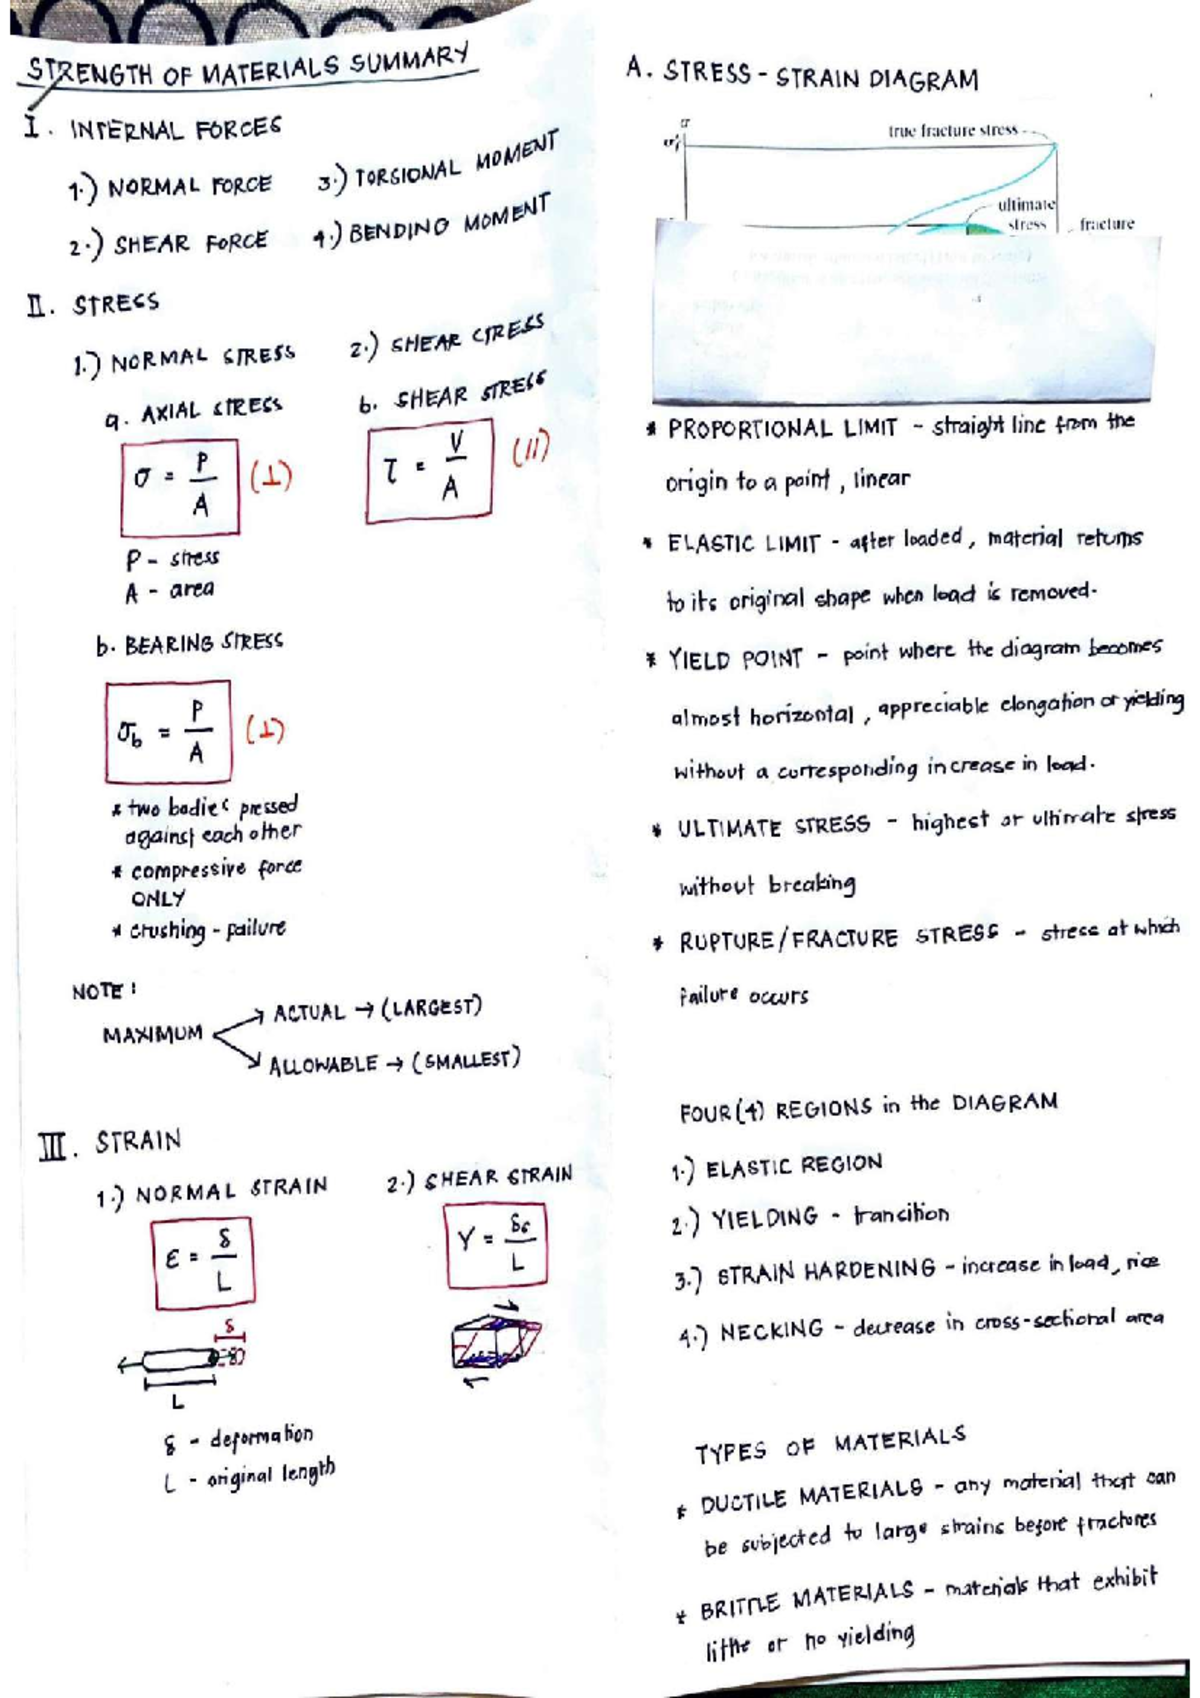 STRENGTH OF MATERIALS SUMMARY
I. INTERNAL FORCES
1.) NORMAL FORCE
3.) TORSIONAL MOMENT
2.) SHEAR FORCE
4.) BENDING MOMENT
II. STRESS
1.) NORMAL STRESS
2.) SHEAR STRESS
a. AXIAL STRESS
b. SHEAR STRESS
σ = P/A (⊥)
τ = V/A (//)
P - stress
A - area
b. BEARING STRESS
σb = P/A (⊥)
* two bodies pressed
against each other
* compressive force
ONLY
* crushing - failure
NOTE:
MAXIMUM
ACTUAL → (LARGEST)
ALLOWABLE → (SMALLEST)
III. STRAIN
1.) NORMAL STRAIN
2.) SHEAR STRAIN
ε = δ/L
γ = δs/L
δ
L
δ - deformation
L - original length
A. STRESS - STRAIN DIAGRAM
σ
true fracture stress
ultimate
stress
fracture
* PROPORTIONAL LIMIT - straight line from the
origin to a point, linear
* ELASTIC LIMIT - after loaded, material returns
to its original shape when load is removed.
* YIELD POINT - point where the diagram becomes
almost horizontal, appreciable elongation or yielding
without a corresponding increase in load.
* ULTIMATE STRESS - highest or ultimate stress
without breaking
* RUPTURE/FRACTURE STRESS - stress at which
failure occurs
FOUR (4) REGIONS in the DIAGRAM
1.) ELASTIC REGION
2.) YIELDING - transition
3.) STRAIN HARDENING - increase in load, rise
4.) NECKING - decrease in cross-sectional area
TYPES OF MATERIALS
* DUCTILE MATERIALS - any material that can
be subjected to large strains before fractures
* BRITTLE MATERIALS - materials that exhibit
little or no yielding